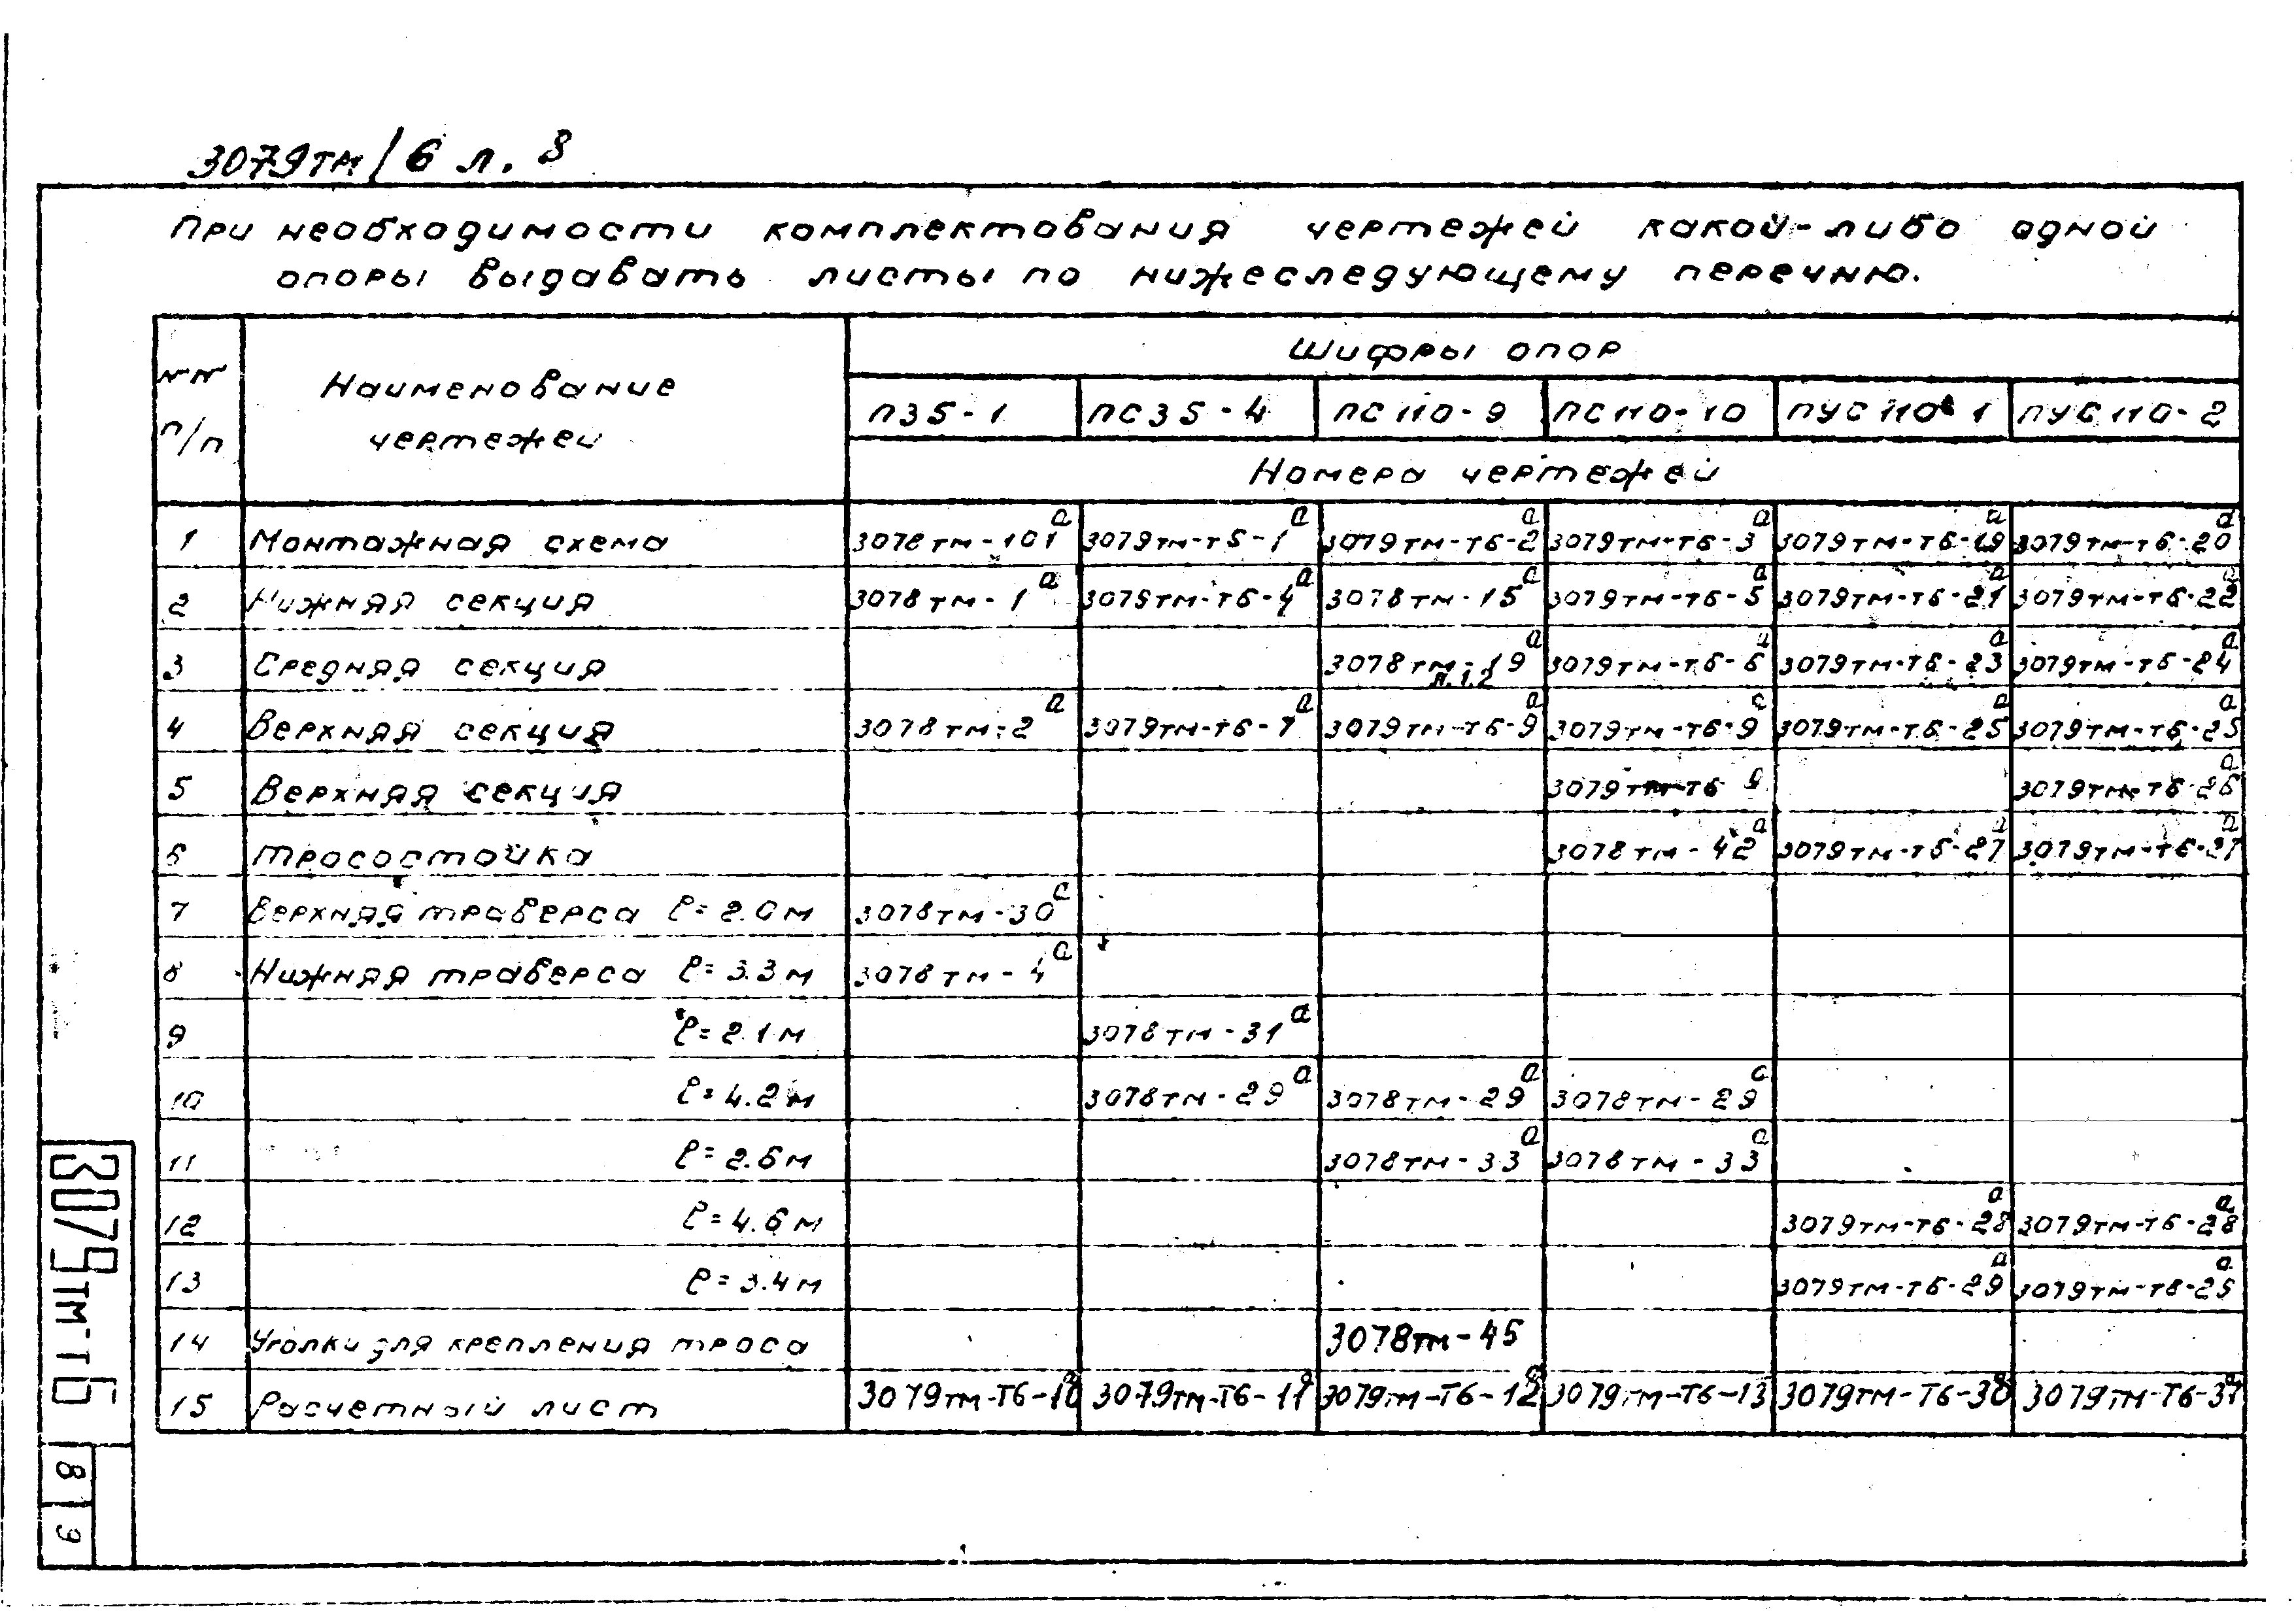 3079тм/6 л. 8
При необходимости комплектования чертежей какой-либо одной
опоры выдавать листы по нижеследующему перечню.
№№ п/п
Наименование чертежей
Шифры опор
П35-1 ПС35-4 ПС110-9 ПС110-10 ПУС110-1 ПУС110-2
Номера чертежей
1 Монтажная схема 3078тм-101а 3079тм-т5-1а 3079тм-т6-2а 3079тм-т6-3а 3079тм-т6-19а 3079тм-т6-20а
2 Нижняя секция 3078тм-1а 3079тм-т6-4а 3078тм-15а 3079тм-т6-5а 3079тм-т6-21а 3079тм-т6-22а
3 Средняя секция 3078тм-19а л.1,2 3079тм-т6-6а 3079тм-т6-23а 3079тм-т6-24а
4 Верхняя секция 3078тм-2а 3079тм-т6-7а 3079тм-т6-9а 3079тм-т6-9а 3079тм-т6-25а 3079тм-т6-25а
5 Верхняя секция 3079тм-т6 3079тм-т6-26а
6 Тросостойка 3078тм-42а 3079тм-т6-27а 3079тм-т6-27а
7 Верхняя траверса ℓ=2.0м 3078тм-30а
8 Нижняя траверса ℓ=3.3м 3078тм-4а
9 ℓ=2.1м 3078тм-31а
10 ℓ=4.2м 3078тм-29а 3078тм-29а 3078тм-29а
11 ℓ=2.6м 3078тм-33а 3078тм-33а
12 ℓ=4.6м 3079тм-т6-28а 3079тм-т6-28а
13 ℓ=3.4м 3079тм-т6-29а 3079тм-т6-29а
14 Уголки для крепления троса 3078тм-45
15 Расчетный лист 3079тм-Т6-10а 3079тм-Т6-11а 3079тм-Т6-12а 3079тм-Т6-13 3079тм-Т6-30а 3079тм-Т6-31а
3079тм-т6
8
9